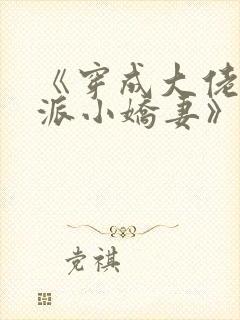 《穿成大佬
派小娇妻》
党祺